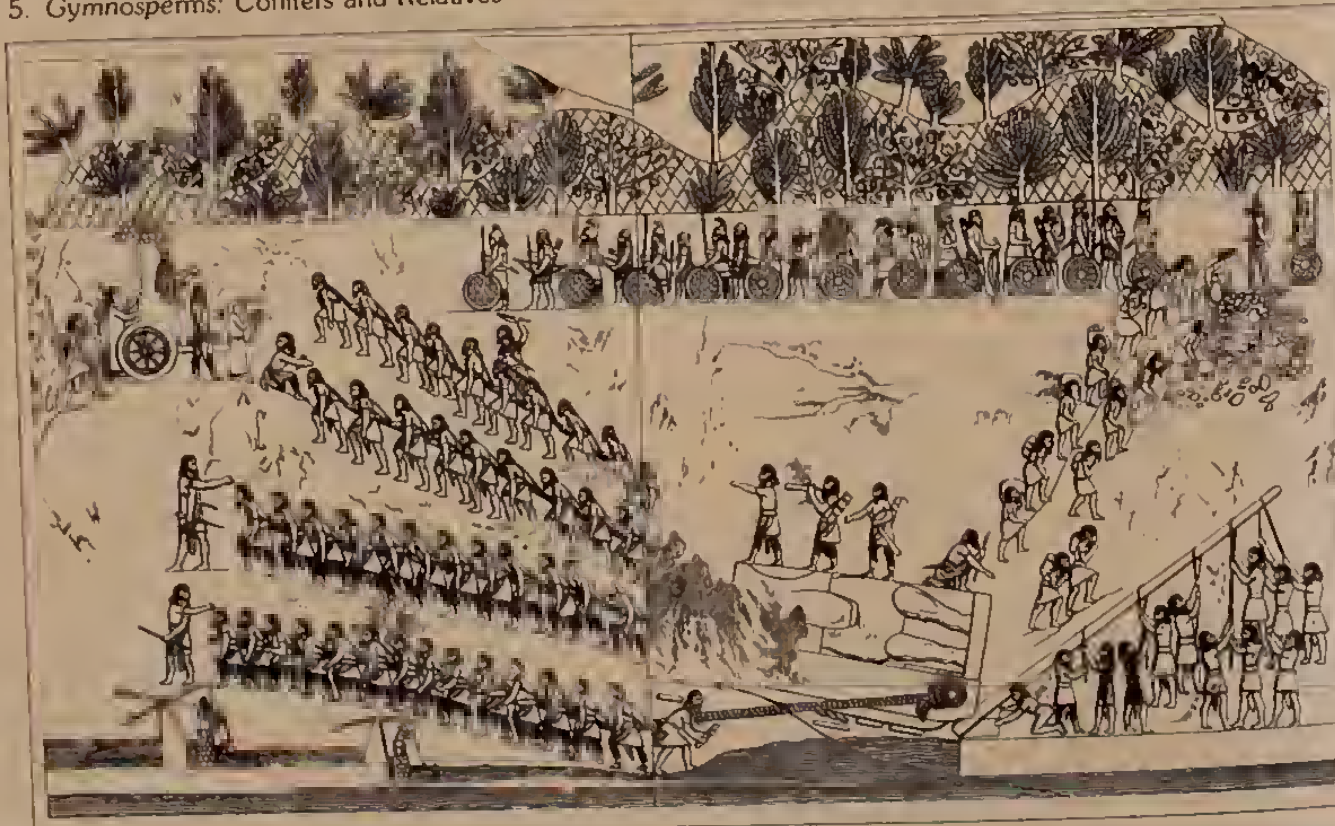 5. Gymnosperms: Conifers and Relatives